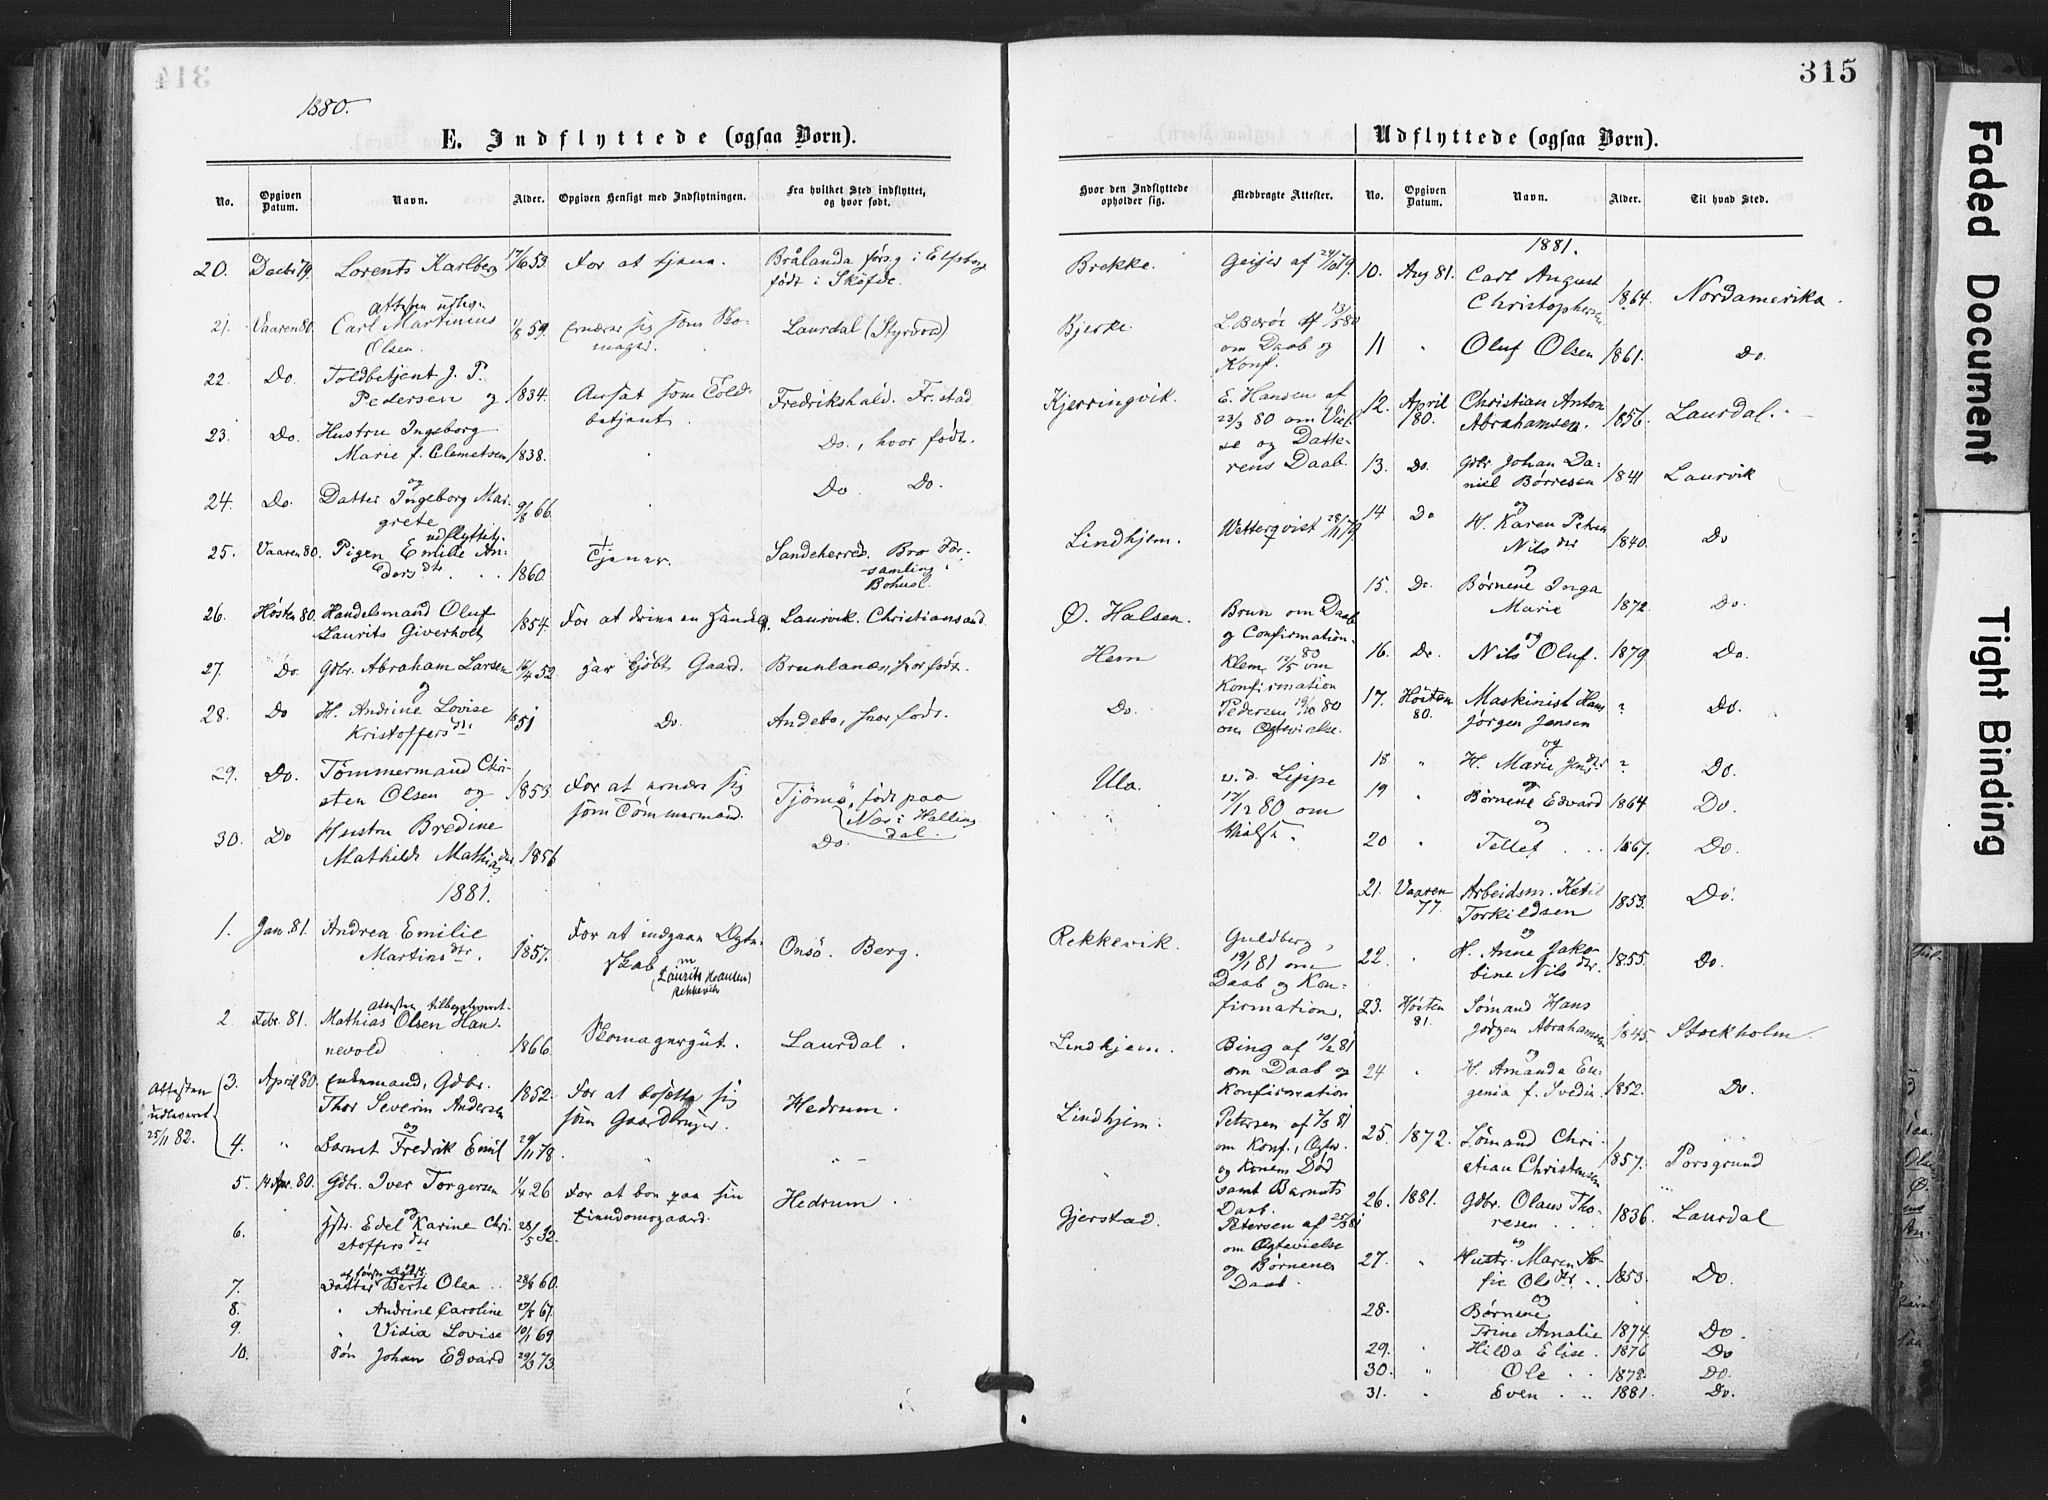 314
1880.
E. Indflyttede (ogsaa Børn).
No.
Opgiven Datum.
Navn.
Alder.
Opgiven Hensigt med Indflytningen.
Fra hvilket Sted indflyttet, og hvor født.
20. Decbr 79. Lorents Karlberg 17/6 53. For at tjene. Brålanda førs.g i Elfsborg
født i Sköfde.
Attesten udleg.
21. Vaaren 80. Carl Martinius 59. ernærer sig som Sko- Laurdal (Styrvold)
Olsen. mager.
22. Do. Toldbetjent J. P.
Pedersen og 1834. Ansat som Told- Fredrikshald. Fr.stad
betjent.
23. Do. Hustru Ingeborg Do., hvor født.
Marie f. Clemetsen 1838.
og
24. Do. Datter Ingeborg Mar- 9/8 66. Do. Do.
grete
udflyttet
25. Vaaren 80. Pigen Emilie An- Tjener. Sandeherred. Bro For-
ders dtr 1860. samling i
Bohusl.
26. Høsten 80. Handelsmand Oluf
Laurits Giverholt 1854. For at drive en Handel. Laurvik. Christiansand.
27. Do. Gdbr. Abraham Larsen 16/4 52. Har kjøbt Gaard. Brunlanæs, hvor født.
og
28. Do H. Andrine Lovise 51 Do. Andebo, hvor født.
Kristoffers dtr.
29. Do. Tømmermand Chri-
sten Olsen og 1853. For at ernære sig Tjömö, født paa
som Tømmermand. Næs i Hallings
dal.
30. Do Hustru Bredine Do.
Mathilde Mathias dtr 1856
1881.
1. Jan. 81. Andrea Emilie For at indgaa Ægte- Onsö. Berg.
Martins dtr. 1857. skab m
(Laurits Hansen)
Rekkevik
Attesten tilbageleveret
2. Febr. 81. Mathias Olsen Han-
nevold 1866. Skomagergut. Laurdal.
Attesten
udleveret
25/11 82.
3. April 80. Enkemand, Gdbr. 1852. For at bosætte sig Hedrum.
Thor Severin Andersen som Gaardbruger.
og
4. " Barnet Fredrik Emil 29/11 78. " " —
5. 14 Apr. 80. Gdbr. Iver Torgersen 1/4 26 For at bo paa sin Hedrum.
og Eiendomsgaard.
6. Hstr. Edel Karine Chri- 28/5 32.
stoffers dtr
7. Datter Berte Olea 28/8 60.
8. " Andrine Caroline 27/8 67.
9. " Vidia Lovise 10/1 69
10. Søn Johan Edvard 29/3 73.
315
Udflyttede (ogsaa Børn).
Hvor den Indflyttede opholder sig.
Medbragte Attester.
No.
Opgiven Datum.
Navn.
Alder.
Til hvad Sted.
Brekke. Geijer af 24/10 79.
Bjerke. L. Borse af 13/5 80
om Daab og
Konf.
Kjerringvik. E. Hansen af
23/3 80 om Viel-
se og Datte-
rens Daab.
Lindhjem. Wetterqvist 28/11 79
Ø. Halsen. Brun om Daab
og Confirmation.
Hem Klem 12/5 80 om
Konfirmation
Do. Pedersen 19/10 80
om Ægtevielse.
Ula. v. d. Lippe
17/12 80 om
Vielse.
Rekkevik. Guldberg,
19/1 81 om
Daab og Kon-
firmation.
Lindhjem. Bing af 10/2 81
om Daab og
Konfirmation
Lindhjem. Petersen af 2/3 81
om Konf., Ægtev.
og Konens Død
samt Barnets
Daab.
Gjerstad. Petersen af 25/3 81
om Ægtevielse
og Børnenes
Daab.
1881.
10. Aug 81. Carl August
Christophersen 1864. Nordamerika.
11 " Oluf Olsen 1861. Do.
12. April 80. Christian Anton
Abrahamsen. 1856. Laurdal.
13. Do. Gdbr Johan Da-
niel Børresen 1841 Laurvik
og
14 Do H. Karen Petrea
Nils dtr 1840. Do
og
15. Do. Børnene Inga
Marie 1872. Do.
og
16. Do. Nils Oluf. 1879 Do.
17. Høsten 80. Maskinist Hans ? Do.
Jørgen Jensen
og
18 " H. Marie Jens dtr ? Do.
og
19 " Børnene Edvard 1864 Do.
og
20 " Tellef 1867. Do.
21. Vaaren 77. Arbeidsm. Ketil
Torkildsen 1853. Do.
og
22. " H. Anne Jako-
bine Nils dtr. 1855. Do.
23. Høsten 81. Sømand Hans
Jørgen Abrahamsen 1845. Stockholm.
og
24 " H. Amanda Eu-
genia f. Svedin. 1852. Do.
25. 1872. Sømand Chri-
stian Christensen 1857. Porsgrund
26. 1881. Gdbr. Olaus Tho-
resen 1836. Laurdal
og
27. " Hustr. Maren So-
fie Ols dtr 1853. Do.
og
28. Børnene
Trine Amalie 1874. Do.
29. " Hilda Elise. 1876 Do
30. " Ole 1878. Do.
31. " Even 1881. Do.
Faded Document
Tight Binding